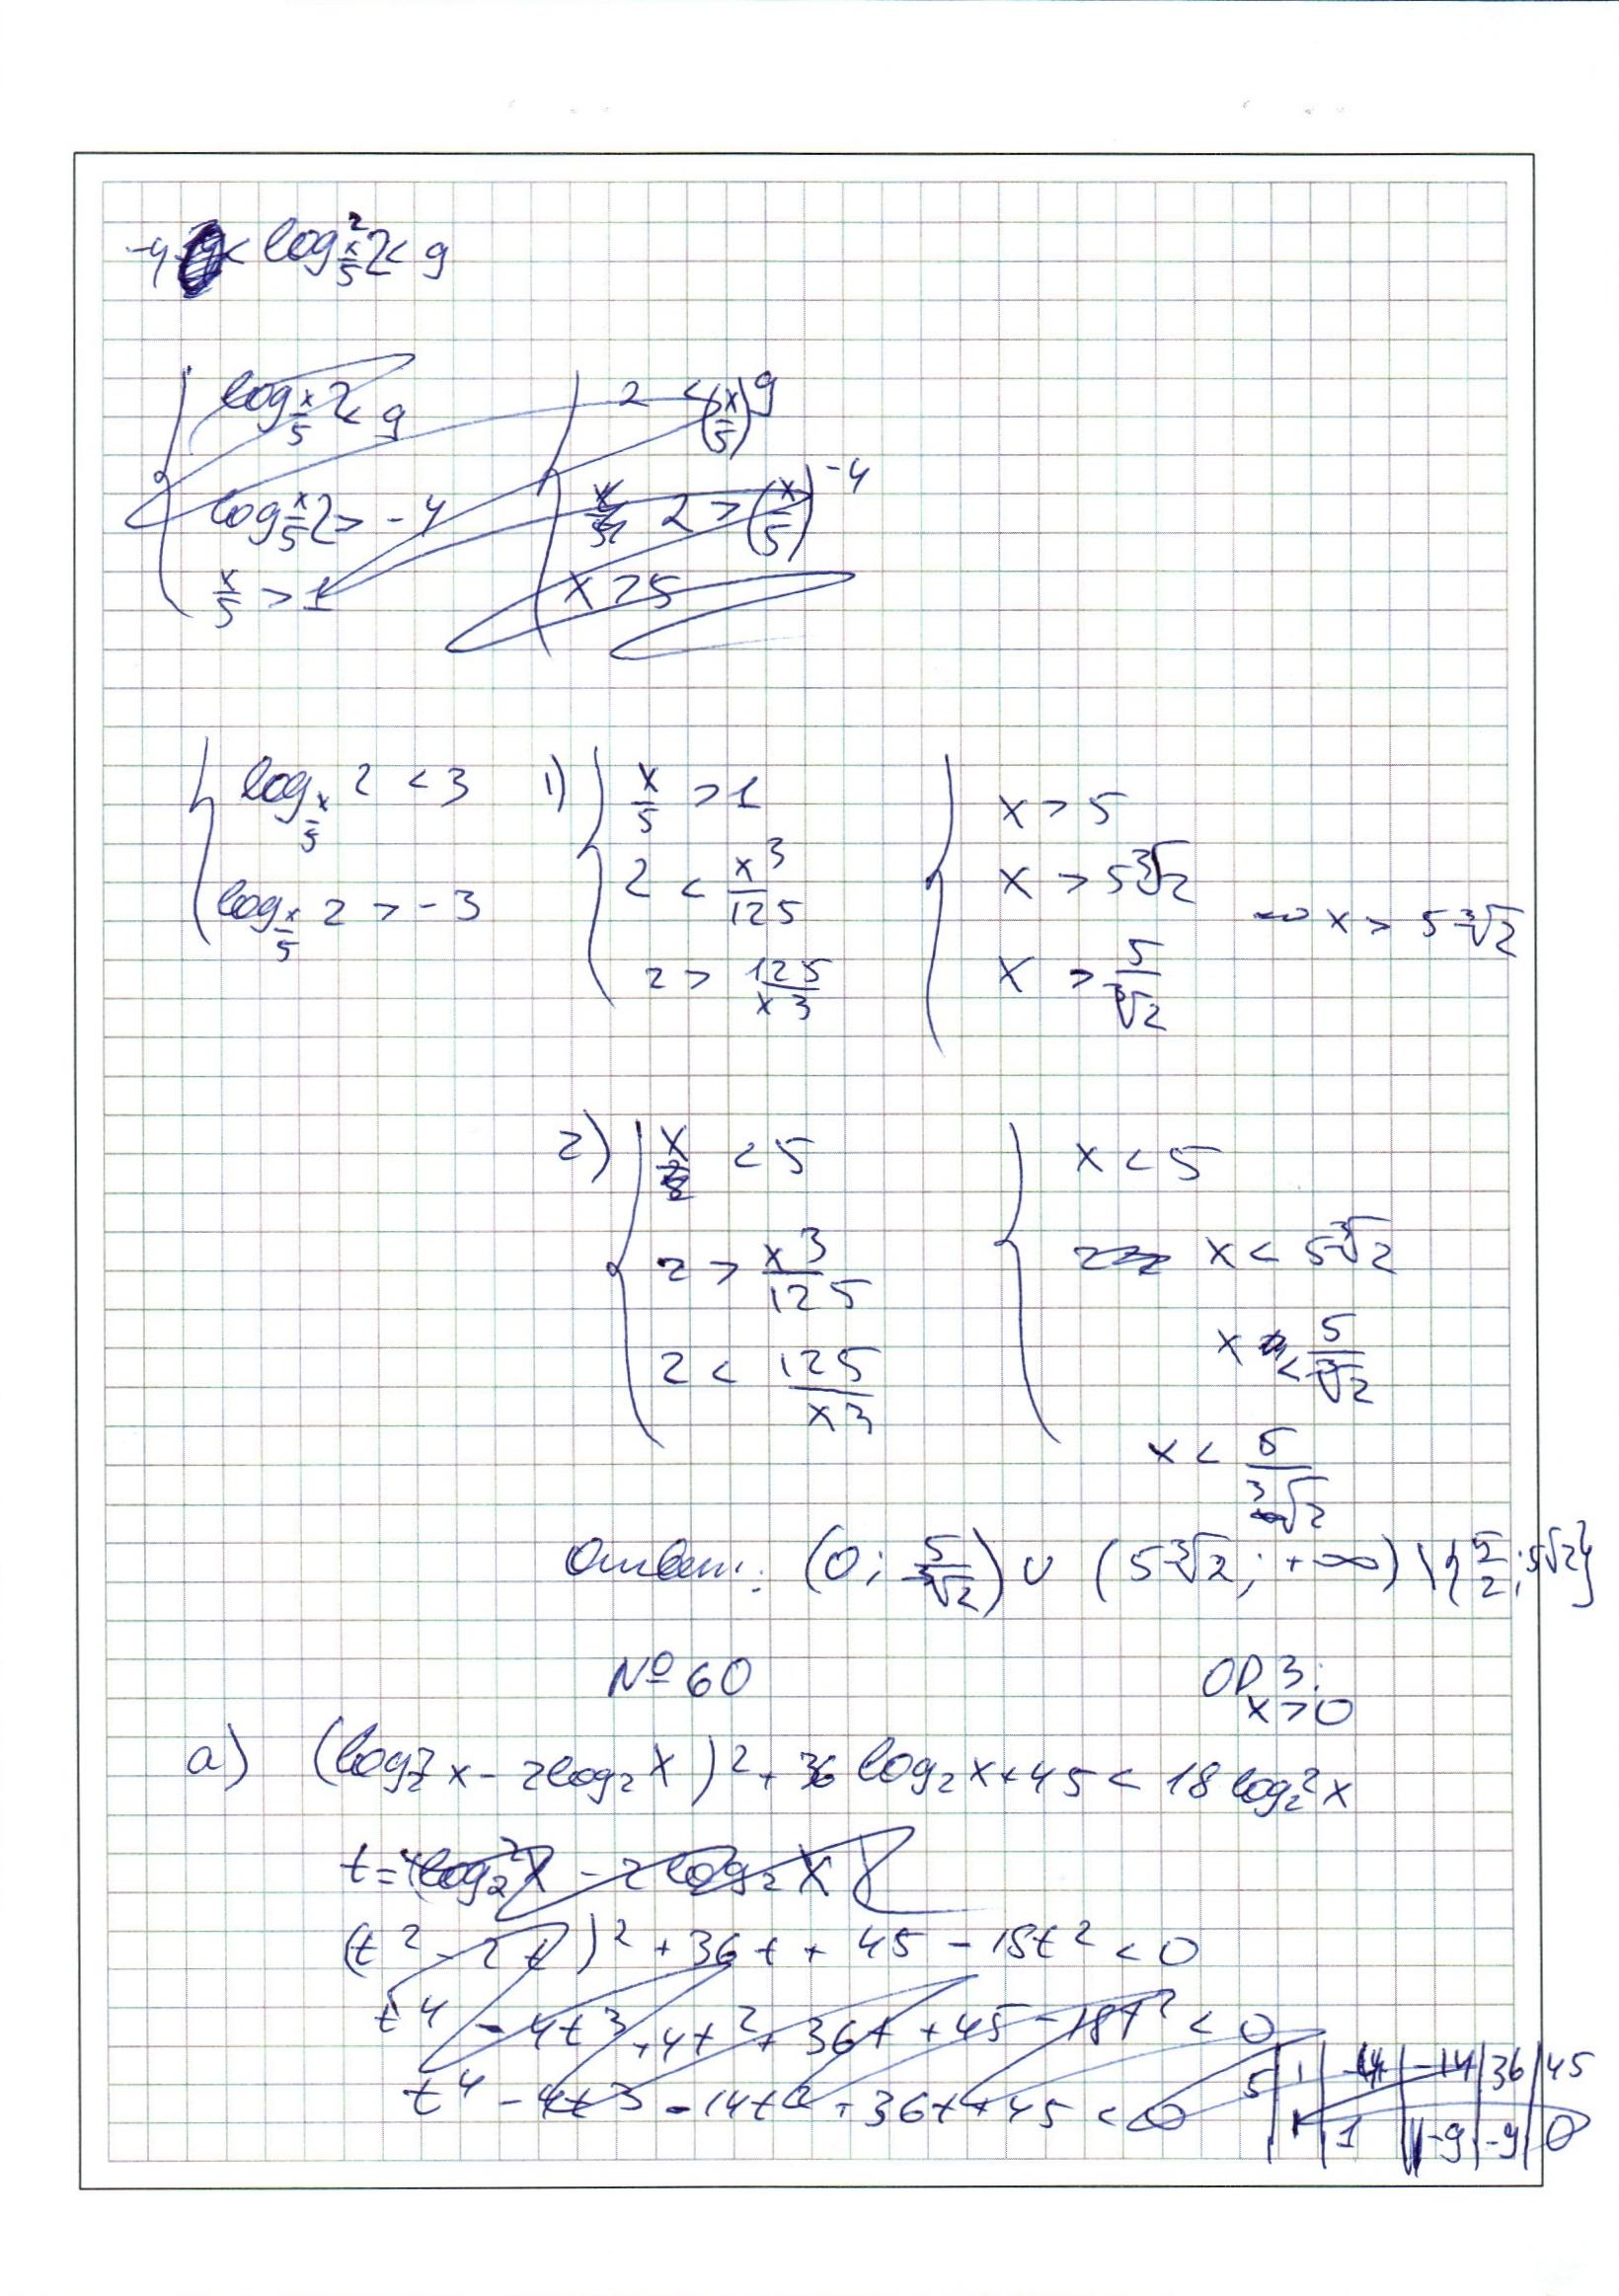 -4 < log²_{x/5} 2 < 9
log_{x/5} 2 < 9
log_{x/5} 2 > -4
x/5 > 1
2 < (x/5)^9
2 > (x/5)^{-4}
x > 5
log_{x/5} 2 < 3
log_{x/5} 2 > -3
1) x/5 > 1
2 < x³/125
2 > 125/x³
x > 5
x > 5∛2
x > 5/∛2
x > 5∛2
2) x < 5
2 > x³/125
2 < 125/x³
x < 5
x < 5∛2
x < 5/∛2
x < 5/∛2
Ответ: (0; 5/∛2) ∪ (5∛2; +∞) \ {5/2; 5√2}
№60
ОДЗ:
x > 0
а) (log₂²x - 2log₂x)² + 36 log₂x + 45 < 18 log₂²x
t = (log₂²x - 2log₂x)
(t² - 2t)² + 36t + 45 - 18t² < 0
t⁴ - 4t³ + 4t² + 36t + 45 - 18t² < 0
t⁴ - 4t³ - 14t² + 36t + 45 < 0
5 | 1 | -4 | -14 | 36 | 45
1 | 1 | -9 | -9 | 0